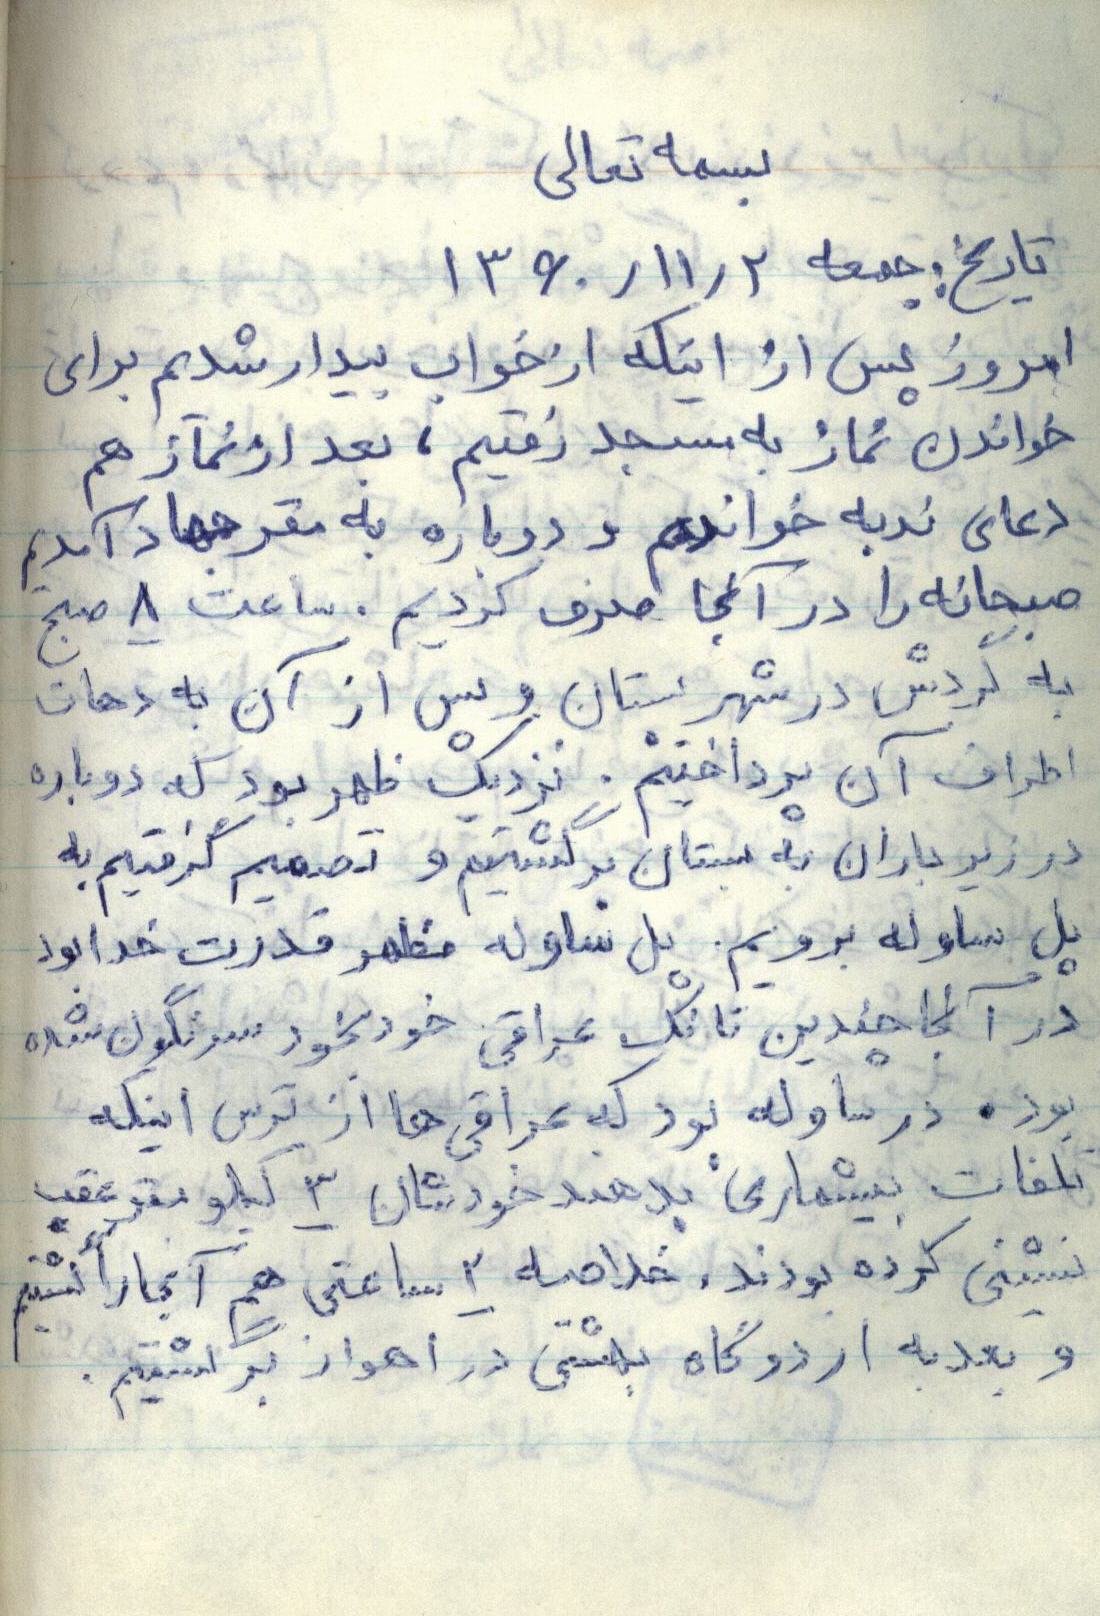 بسمه تعالی
تاریخ: جمعه ۱۳۶۰/۱۱/۲
امروز پس از اینکه از خواب بیدار شدیم برای
خواندن نماز به مسجد رفتیم، بعد از نماز هم
دعای ندبه خواندیم و دوباره به مقر جهاد آمدیم
صبحانه را در آنجا صرف کردیم. ساعت ۸ صبح
به گردش در شهر بستان و پس از آن به دهات
اطراف آن پرداختیم. نزدیک ظهر بود که دوباره
در زیر باران به بستان برگشتیم و تصمیم گرفتیم به
پل ساوله برویم. پل ساوله مظهر قدرت خدا بود
در آنجا چندین تانک عراقی خودبخود سرنگون شده
بود. در ساوله بود که عراقی ها از ترس اینکه
تلفات بیشماری بدهند خودشان ۳ کیلومتر عقب
نشینی کرده بودند. خلاصه ۲ ساعتی هم آنجا را گشتیم
و بعد به اردوگاه بهشتی در اهواز برگشتیم.